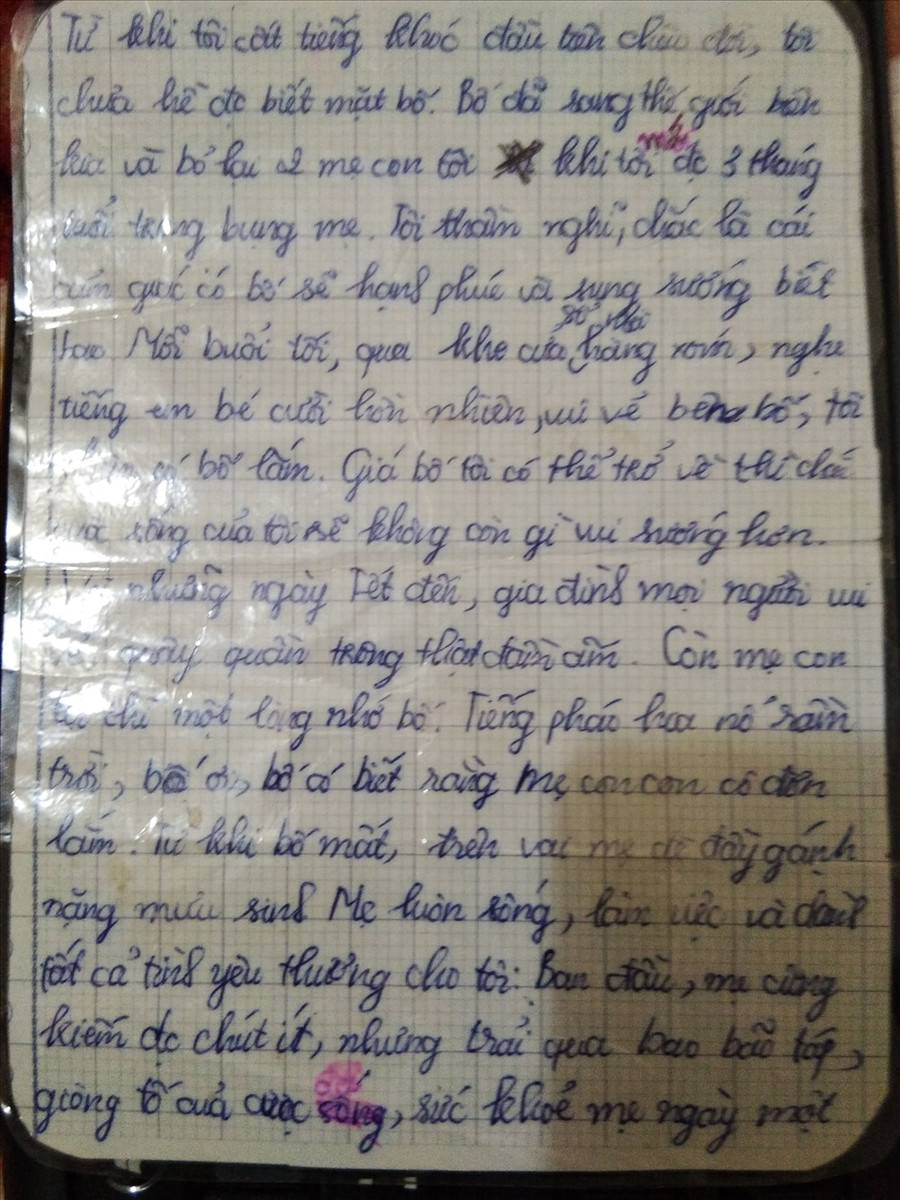 Từ khi tôi cất tiếng khóc đầu tiên chào đời, tôi
chưa hề đc biết mặt bố. Bố đã sang thế giới bên
kia và bỏ lại 2 mẹ con tôi khi tôi mới đc 3 tháng
tuổi trong bụng mẹ. Tôi thầm nghĩ, chắc là cái
giác có bố sẽ hạnh phúc và sung sướng biết
bao Mỗi buổi tối, qua khe cửa sổ nhà hàng xóm, nghe
tiếng em bé cười hồn nhiên, vui vẻ bên bố, tôi
có bố lắm. Giá bố tôi có thể trở về thì chắc
sống của tôi sẽ không còn gì vui sướng hơn.
những ngày Tết đến, gia đình mọi người vui
vẻ quây quần trong thật đầm ấm. Còn mẹ con
tôi chỉ một lòng nhớ bố. Tiếng pháo hoa nổ rầm
trời, bố ơi, bố có biết rằng mẹ con con cô đơn
lắm. Từ khi bố mất, trên vai mẹ đè đầy gánh
nặng mưu sinh Mẹ luôn sống, làm việc và dành
tất cả tình yêu thương cho tôi. Ban đầu, mẹ cũng
kiếm đc chút ít, nhưng trải qua bao bão táp,
giông tố của cuộc đời, sức khoẻ mẹ ngày một